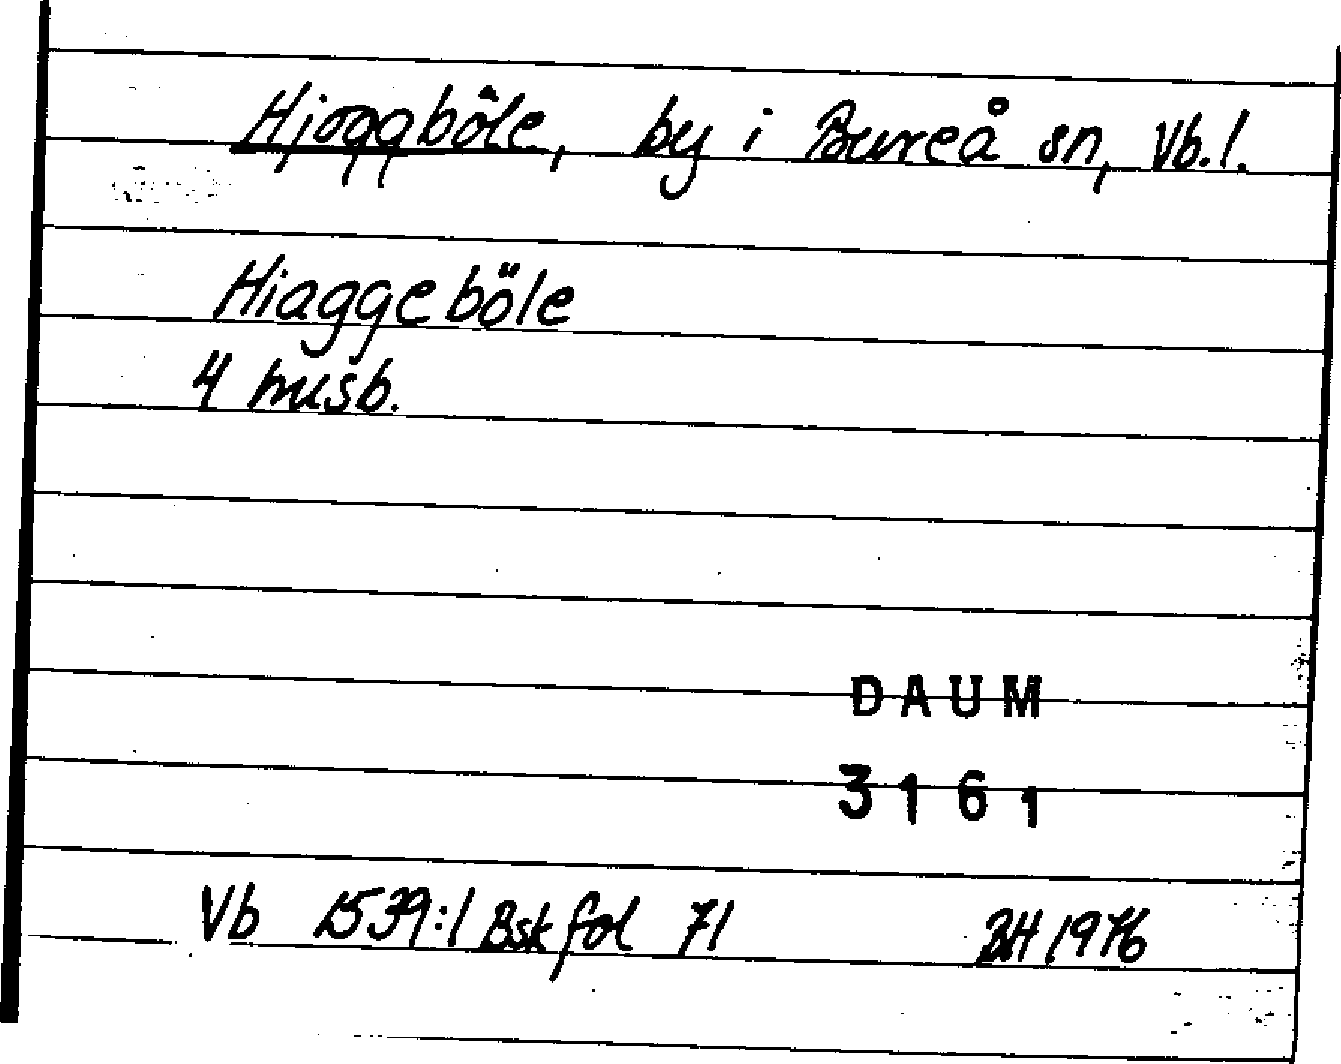 Hjoggböle, by i Bureå sn, Vb.l.
Hiaggeböle
4 husb.
DAUM
3161
Vb 1539:1 Bsk fol 71 BH 1976